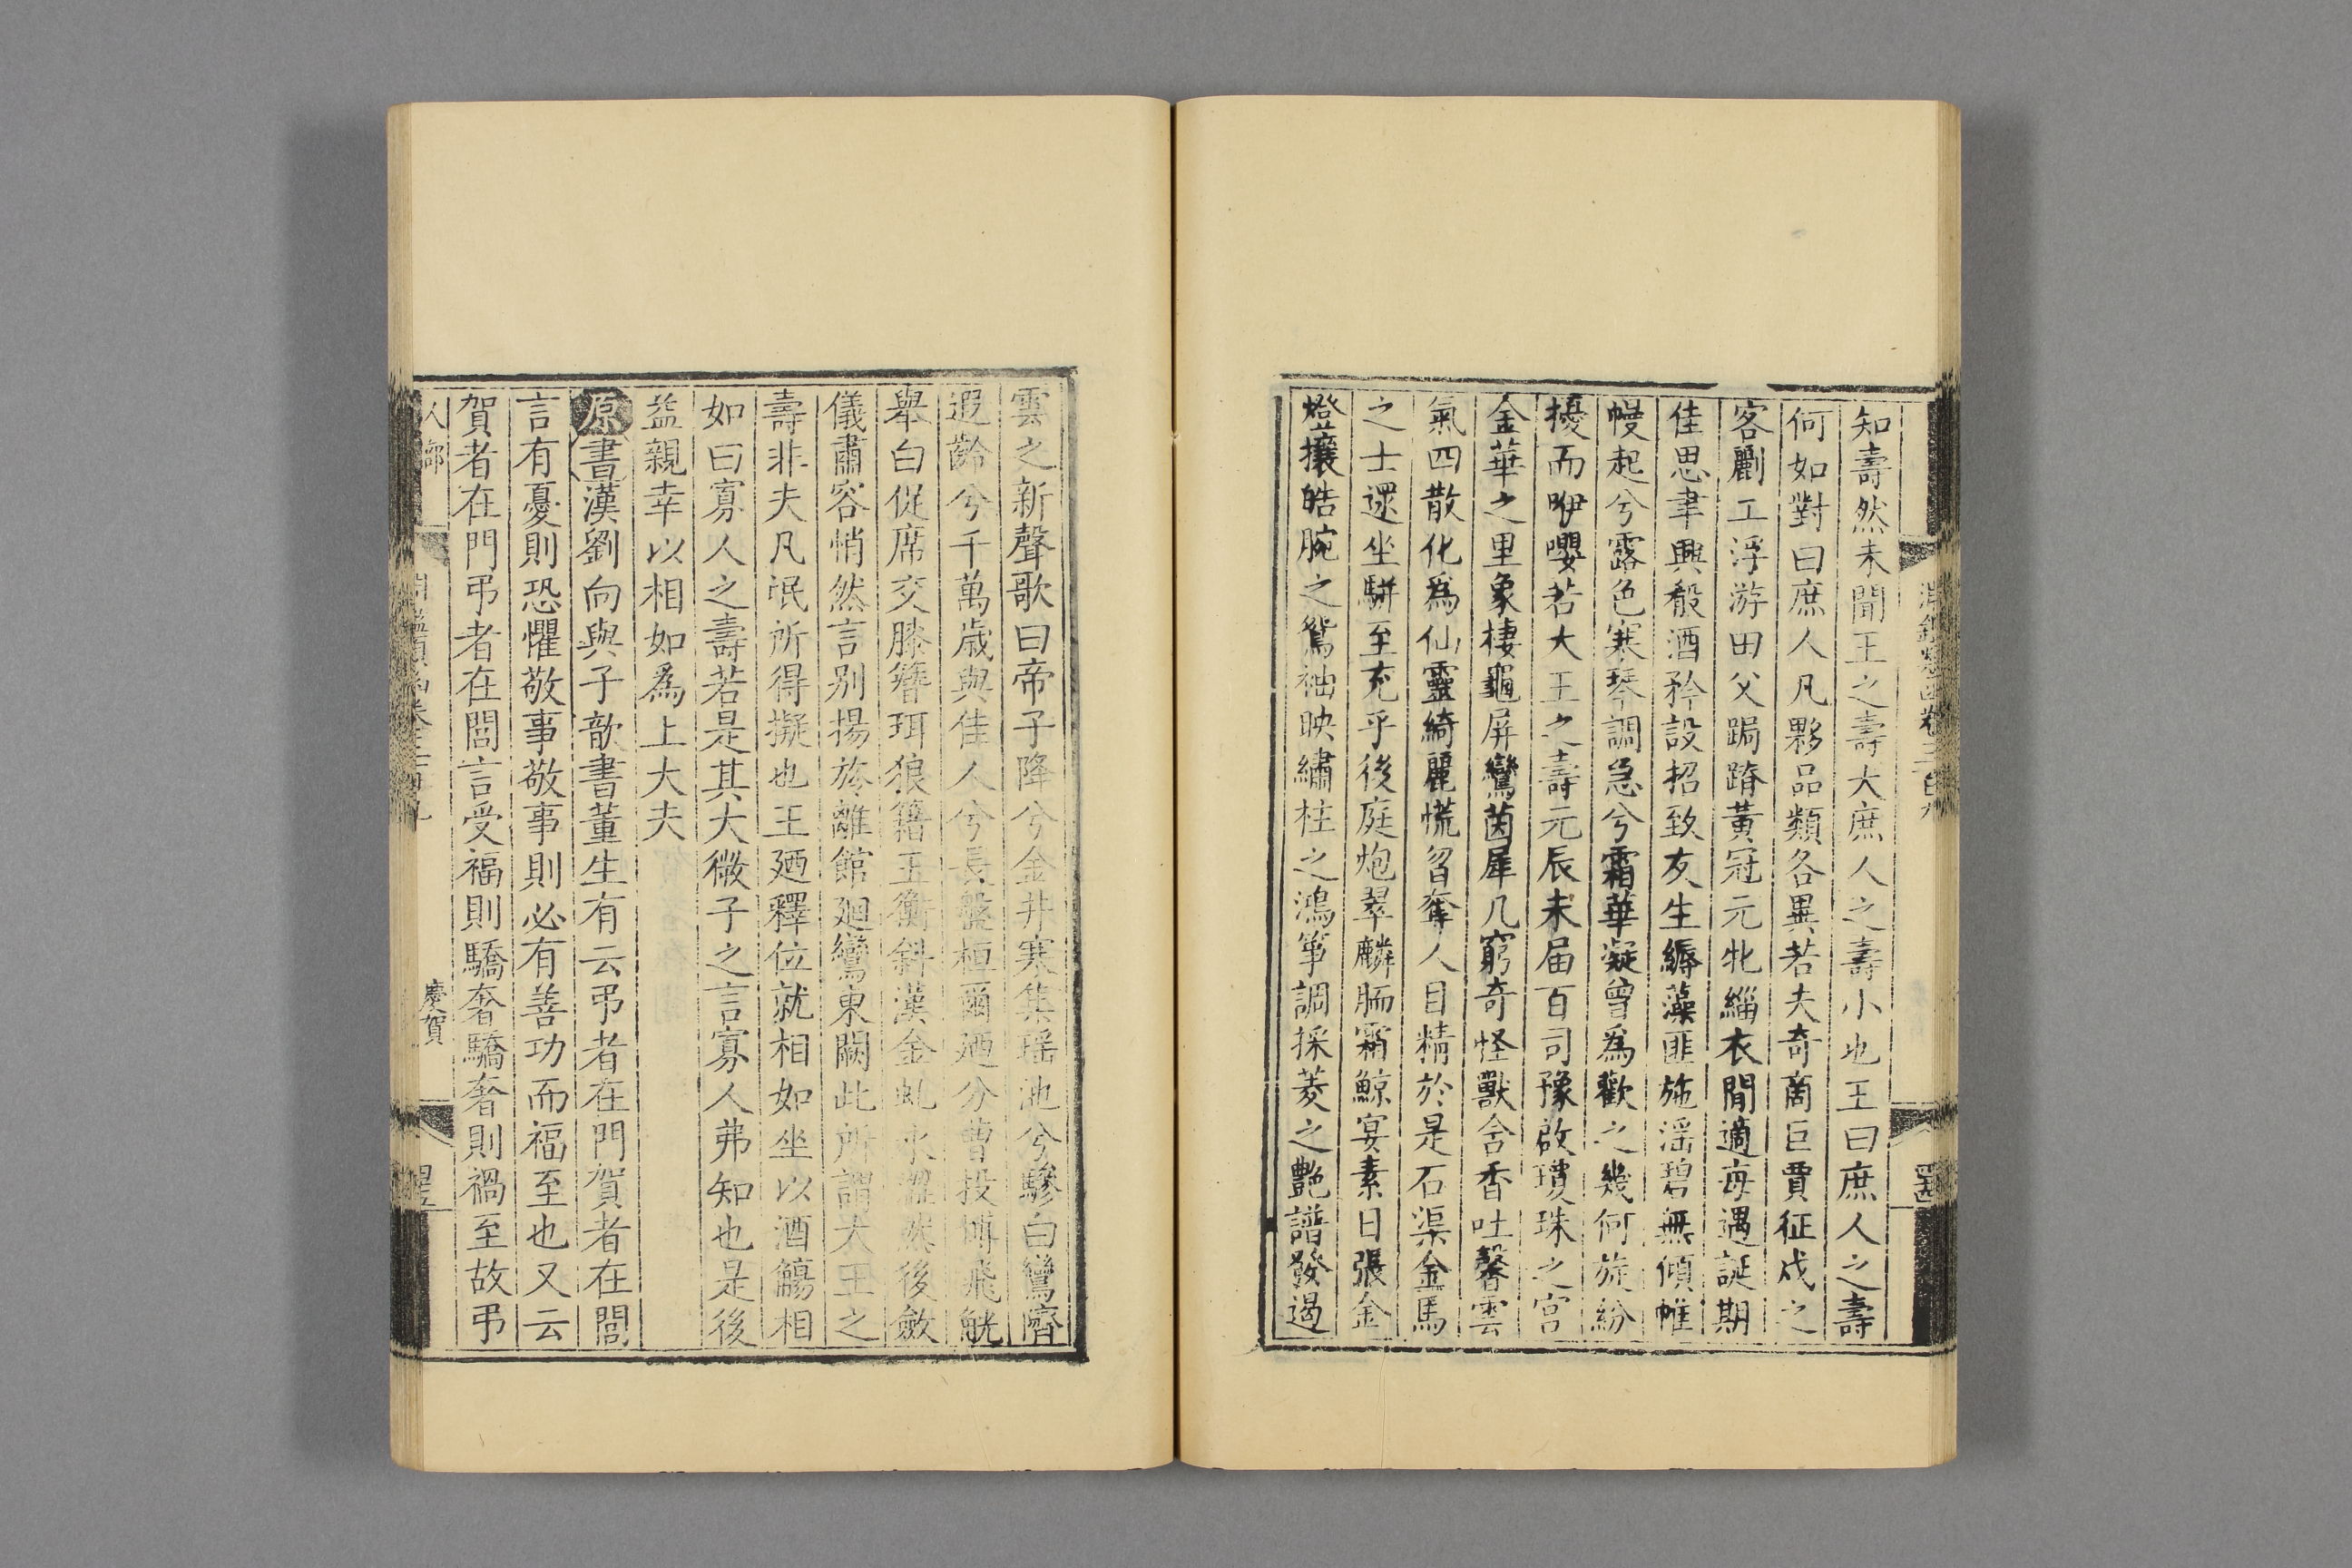 知壽然未聞王之壽大庶人之壽小也王曰庶人之壽
何如對曰庶人凡夥品類各異若夫奇商巨賈征戍之
客劚工浮游田父跼蹐黃冠元牝緇衣閒適每遇誕期
佳思聿興殽酒矜設招致友生縟藻匪施滛碧無傾帷
幔起兮露色寒琴調急兮霜華凝曾爲歡之幾何旋紛
擾而咿嚶若大王之壽元辰未届百司豫啟瓊珠之宫
金華之里象棲龜屏鸞茵犀几窮奇怪獸含香吐馨雲
氣四散化爲仙靈綺麗慌曶奪人目精於是石渠金馬
之士還坐駢至充乎後庭炮翠麟胹霜鯨宴素日張金
燈攘皓腕之鴛袖映繡柱之鴻箏調採菱之艷譜發遏
雲之新聲歌曰帝子降兮金井寒集瑶池兮驂白鸞齊
遐齡兮千萬歲與佳人兮長盤桓爾廼分曹投博飛觥
舉白促席交膝簪珥狼籍玉衡斜漢金虬水澀然後斂
儀肅容悄然言别揚旍離館廻鸞東闕此所謂大王之
壽非夫凡氓所得擬也王廼釋位就相如坐以酒觴相
如曰寡人之壽若是其大微子之言寡人弗知也是後
益親幸以相如爲上大夫
原書漢劉向與子歆書董生有云弔者在門賀者在閭
言有憂則恐懼敬事敬事則必有善功而福至也又云
賀者在門弔者在閭言受福則驕奢驕奢則禍至故弔
人部
慶賀